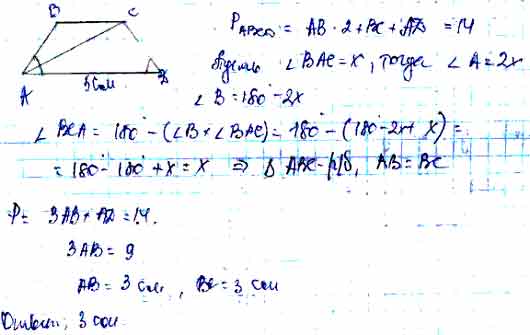 B C
A D
5 см
P_ABCD = AB · 2 + BC + AD = 14
Пусть ∠BAC = x, тогда ∠A = 2x
∠B = 180° - 2x
∠BCA = 180° - (∠B + ∠BAC) = 180° - (180° - 2x + x) =
= 180° - 180° + x = x ⇒ Δ ABC - р/б, AB = BC
P = 3AB + AD = 14.
3AB = 9
AB = 3 см, BC = 3 см
Ответ: 3 см